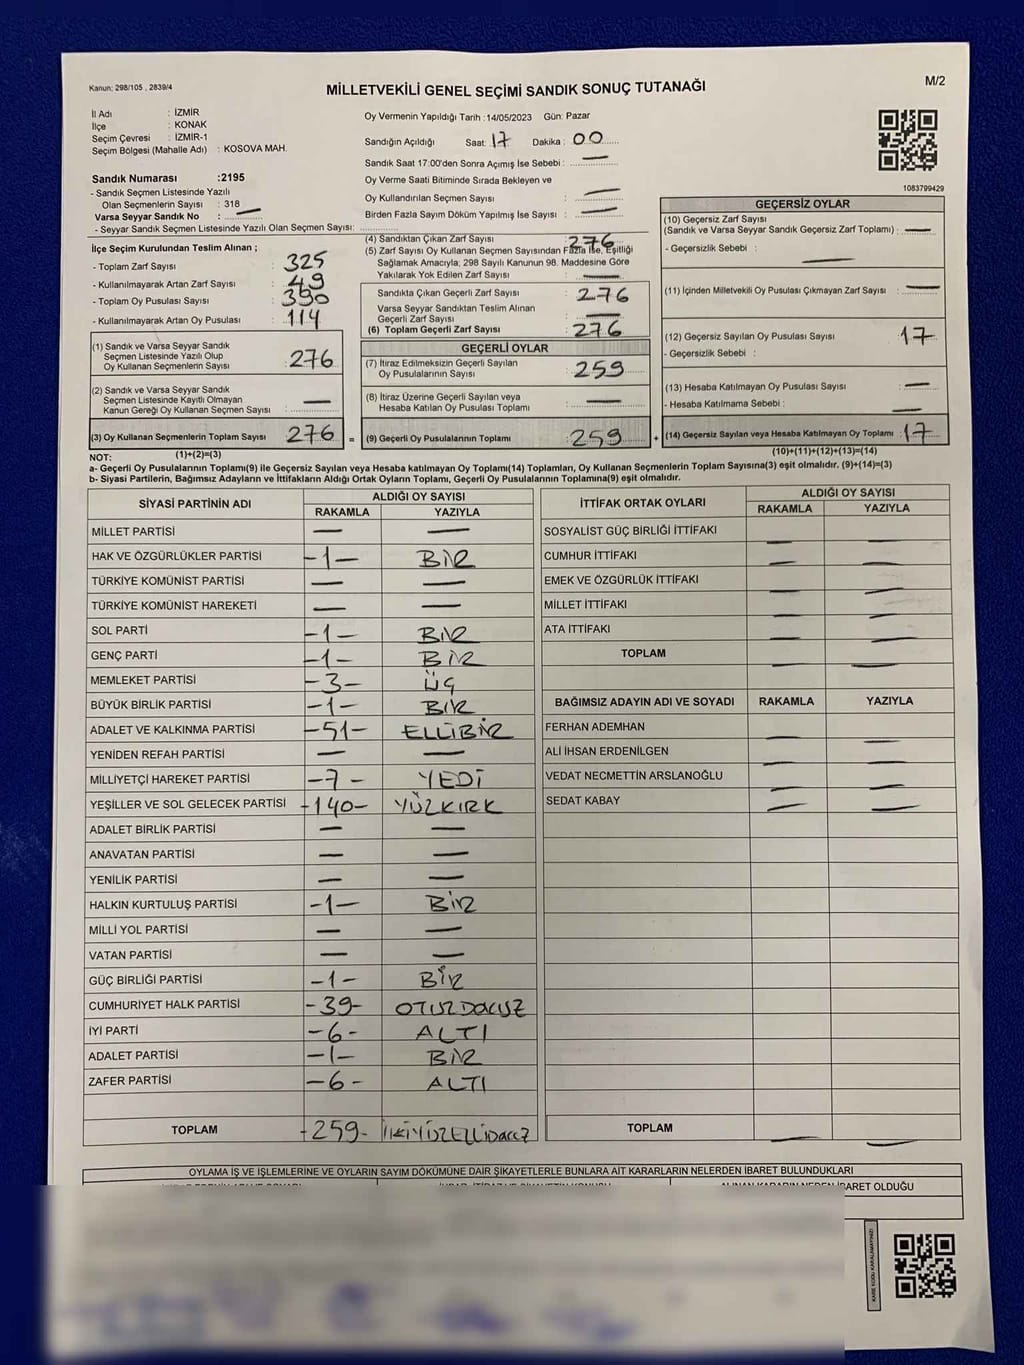 Kanun: 298/105 , 2839/4
MİLLETVEKİLİ GENEL SEÇİMİ SANDIK SONUÇ TUTANAĞI
M/2
İl Adı : İZMİR
İlçe : KONAK
Seçim Çevresi : İZMİR-1
Seçim Bölgesi (Mahalle Adı) : KOSOVA MAH.
Sandık Numarası :2195
- Sandık Seçmen Listesinde Yazılı
Olan Seçmenlerin Sayısı : 318
Varsa Seyyar Sandık No : —
- Seyyar Sandık Seçmen Listesinde Yazılı Olan Seçmen Sayısı:
Oy Vermenin Yapıldığı Tarih :14/05/2023 Gün: Pazar
Sandığın Açıldığı Saat: 17 Dakika : 00
Sandık Saat 17:00'den Sonra Açımış İse Sebebi : —
Oy Verme Saati Bitiminde Sırada Bekleyen ve
Oy Kullandırılan Seçmen Sayısı : —
Birden Fazla Sayım Döküm Yapılmış İse Sayısı : —
1083799429
İlçe Seçim Kurulundan Teslim Alınan ;
- Toplam Zarf Sayısı : 325
- Kullanılmayarak Artan Zarf Sayısı : 49
- Toplam Oy Pusulası Sayısı : 390
- Kullanılmayarak Artan Oy Pusulası : 114
(1) Sandık ve Varsa Seyyar Sandık
Seçmen Listesinde Yazılı Olup
Oy Kullanan Seçmenlerin Sayısı : 276
(2) Sandık ve Varsa Seyyar Sandık
Seçmen Listesinde Kayıtlı Olmayan
Kanun Gereği Oy Kullanan Seçmen Sayısı : —
(3) Oy Kullanan Seçmenlerin Toplam Sayısı : 276 =
(1)+(2)=(3)
(4) Sandıktan Çıkan Zarf Sayısı : 276
(5) Zarf Sayısı Oy Kullanan Seçmen Sayısından Fazla İse, Eşitliği
Sağlamak Amacıyla; 298 Sayılı Kanunun 98. Maddesine Göre
Yakılarak Yok Edilen Zarf Sayısı : —
Sandıkta Çıkan Geçerli Zarf Sayısı : 276
Varsa Seyyar Sandıktan Teslim Alınan
Geçerli Zarf Sayısı : —
(6) Toplam Geçerli Zarf Sayısı : 276
GEÇERLİ OYLAR
(7) İtiraz Edilmeksizin Geçerli Sayılan
Oy Pusulalarının Sayısı : 259
(8) İtiraz Üzerine Geçerli Sayılan veya
Hesaba Katılan Oy Pusulası Toplamı : —
(9) Geçerli Oy Pusulalarının Toplamı : 259 +
GEÇERSİZ OYLAR
(10) Geçersiz Zarf Sayısı
(Sandık ve Varsa Seyyar Sandık Geçersiz Zarf Toplamı) : —
- Geçersizlik Sebebi : —
(11) İçinden Milletvekili Oy Pusulası Çıkmayan Zarf Sayısı : —
(12) Geçersiz Sayılan Oy Pusulası Sayısı : 17
- Geçersizlik Sebebi :
(13) Hesaba Katılmayan Oy Pusulası Sayısı : —
- Hesaba Katılmama Sebebi : —
(14) Geçersiz Sayılan veya Hesaba Katılmayan Oy Toplamı : 17
(10)+(11)+(12)+(13)=(14)
NOT:
a- Geçerli Oy Pusulalarının Toplamı(9) ile Geçersiz Sayılan veya Hesaba katılmayan Oy Toplamı(14) Toplamları, Oy Kullanan Seçmenlerin Toplam Sayısına(3) eşit olmalıdır. (9)+(14)=(3)
b- Siyasi Partilerin, Bağımsız Adayların ve İttifakların Aldığı Ortak Oyların Toplamı, Geçerli Oy Pusulalarının Toplamına(9) eşit olmalıdır.
SİYASİ PARTİNİN ADI ALDIĞI OY SAYISI
RAKAMLA YAZIYLA
MİLLET PARTİSİ — —
HAK VE ÖZGÜRLÜKLER PARTİSİ -1- BİR
TÜRKİYE KOMÜNİST PARTİSİ — —
TÜRKİYE KOMÜNİST HAREKETİ — —
SOL PARTİ -1- BİR
GENÇ PARTİ -1- BİR
MEMLEKET PARTİSİ -3- ÜÇ
BÜYÜK BİRLİK PARTİSİ -1- BİR
ADALET VE KALKINMA PARTİSİ -51- ELLİBİR
YENİDEN REFAH PARTİSİ — —
MİLLİYETÇİ HAREKET PARTİSİ -7- YEDİ
YEŞİLLER VE SOL GELECEK PARTİSİ -140- YÜZKIRK
ADALET BİRLİK PARTİSİ — —
ANAVATAN PARTİSİ — —
YENİLİK PARTİSİ — —
HALKIN KURTULUŞ PARTİSİ -1- BİR
MİLLİ YOL PARTİSİ — —
VATAN PARTİSİ — —
GÜÇ BİRLİĞİ PARTİSİ -1- BİR
CUMHURİYET HALK PARTİSİ -39- OTUZDOKUZ
İYİ PARTİ -6- ALTI
ADALET PARTİSİ -1- BİR
ZAFER PARTİSİ -6- ALTI
TOPLAM -259- İKİYÜZELLİDOKUZ
İTTİFAK ORTAK OYLARI ALDIĞI OY SAYISI
RAKAMLA YAZIYLA
SOSYALİST GÜÇ BİRLİĞİ İTTİFAKI — —
CUMHUR İTTİFAKI — —
EMEK VE ÖZGÜRLÜK İTTİFAKI — —
MİLLET İTTİFAKI — —
ATA İTTİFAKI — —
TOPLAM — —
BAĞIMSIZ ADAYIN ADI VE SOYADI RAKAMLA YAZIYLA
FERHAN ADEMHAN — —
ALİ İHSAN ERDENİLGEN — —
VEDAT NECMETTİN ARSLANOĞLU — —
SEDAT KABAY — —
TOPLAM — —
OYLAMA İŞ VE İŞLEMLERİNE VE OYLARIN SAYIM DÖKÜMÜNE DAİR ŞİKAYETLERLE BUNLARA AİT KARARLARIN NELERDEN İBARET BULUNDUKLARI
ALINAN KARARIN NEDEN İBARET OLDUĞU
KARE KODU KARALAMAYINIZ!